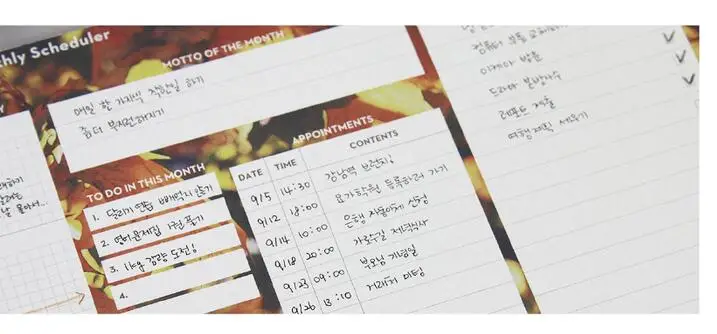 hly Scheduler
MOTTO OF THE MONTH
매일 한 가지씩 착한일 하기
좀더 부지런해지기
TO DO IN THIS MONTH
1. 달리기 연습
2. 영어문제집 1권 풀기
3. 1kg 감량 도전!
4.
APPOINTMENTS
DATE TIME CONTENTS
9/5 14:30 강남역 브런치!
9/12 18:00 요가학원 등록하러 가기
9/14 10:00 은행 자동이체 신청
9/18 20:00 가로수길 저녁식사
9/23 09:00 부모님 기념일
9/26 13:10 거래처 미팅
컴퓨터 부품
이케아 방문
드라마 본방사수
레포트 제출
여행계획 세우기